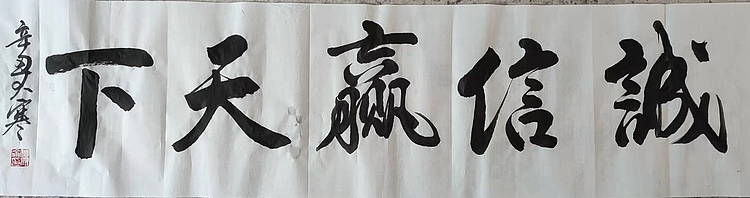 誠信贏天下
辛丑大寒